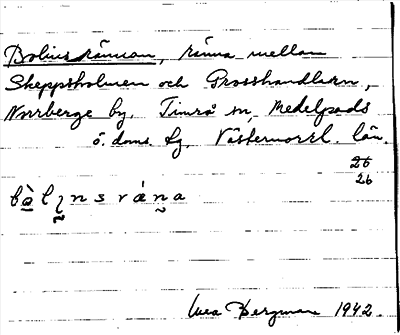 Boliusrännan, ränna mellan
Skeppsholmen och Grosshandlarn,
Norrberge by, Timrå sn, Medelpads
ö. doms. tg. Västernorrl. län.
26
26
Bergman 1942.